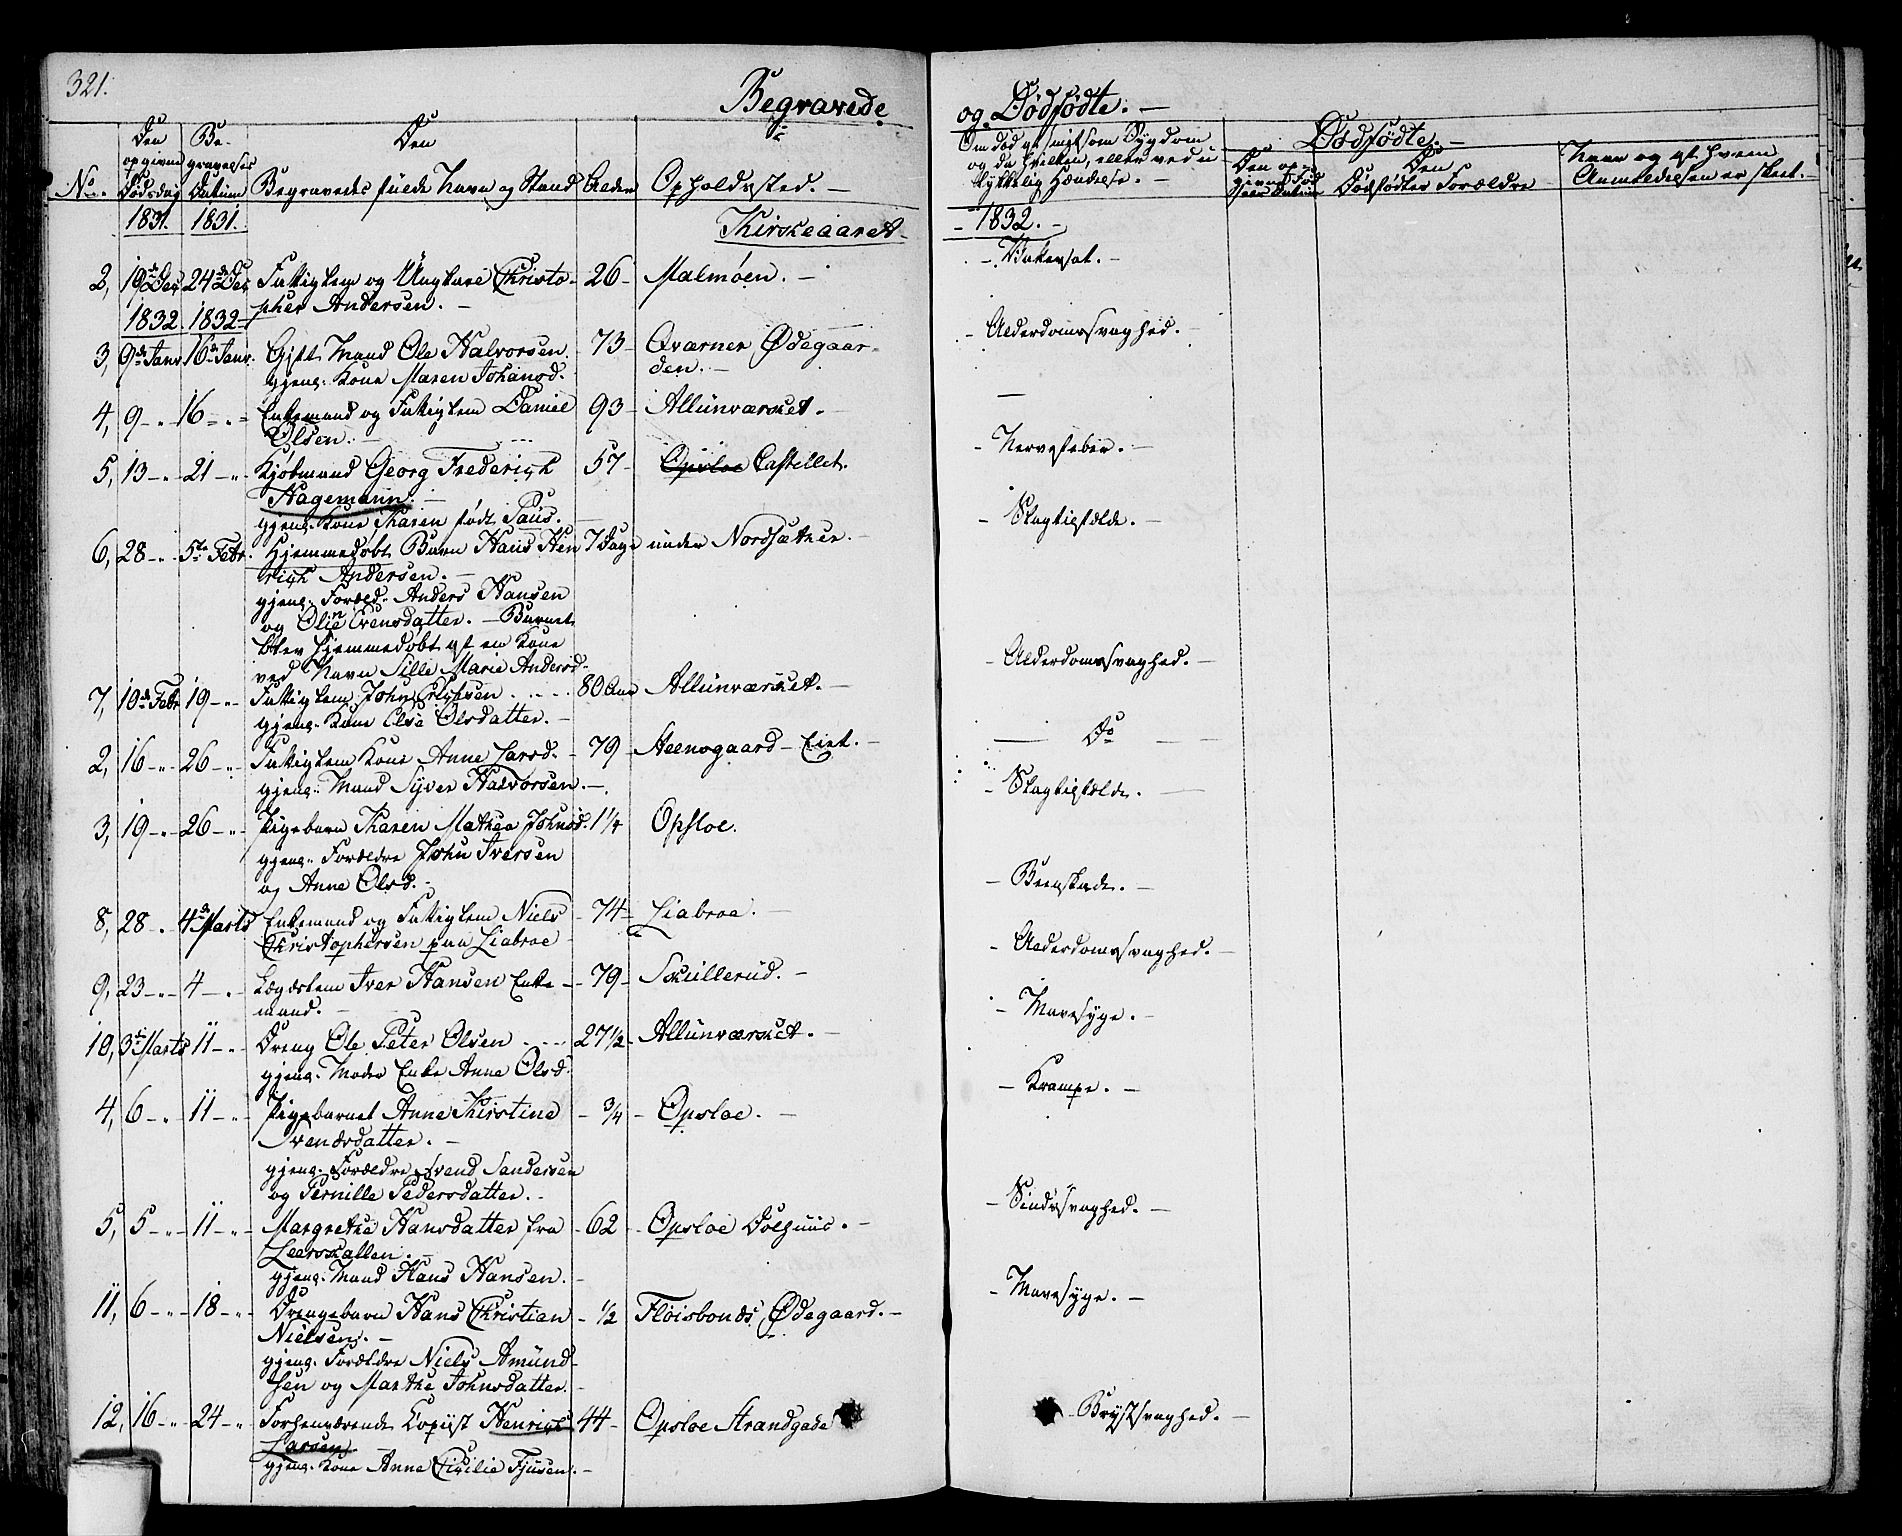 321.
Begravede
og Dødfødte. —
No. Den opgivne Dødsdag
Begravelses Datum
Den Begravedes fulde Navn og Stand
Alder
Opholdssted. —
Om død af nogen Sygdom og da hvilken, eller ved ulykkelig Hændelse. —
Dødfødte. —
Den Dødfødtes Forældre
Navn og af hvem Anmeldelsen er skeet. —
1831. 1831. Kirkeaaret — 1832. —
2, 19de Dec 24de Dec Fattiglem og Ungkarl Christo- 26 — Malmøen. —
pher Andersen. —
1832 1832
3, 9de Janr 16de Janr. Gift Mand Ole Halvorsen. 73 — Qværner Ødegaar- — Alderdomssvaghed. —
gjenl. Kone Maren Johansd. den. —
4, 9 — 16 — Enkemand og Fattiglem Daniel 93 — Allunværket. — —
Olsen. —
5, 13 — 21 — Kjøbmand Georg Frederich 57 — Opsloe Castellet. — Nervefeber. —
Hagemann. —
gjenl. Kone Karen født Paus. —
6, 28 — 5te Febr. Hjemmedøbt Barn Hans Hen 7 Dage under Nordsæther. — — Slagtilfælde. —
rich Andersen. —
gjenl. Foræld. Anders Hansen
og Oline Evensdatter. — Barnet
blev hjemmedøbt af en Kone
ved Navn Sille Marie Andersd.
7, 10de Febr 19 — Fattiglem John 80 Aar Allunværket. — — Alderdomssvaghed. —
gjenl. Kone Else Olsdatter. —
2, 16 — 26 — Fattiglem Kone Anne Larsd. — 79 — Eiet. — — Do —
gjenl. Mand Syver Halvorsen. —
3, 19 — 26 — Pigebarn Karen Mathea Johnsd. 1 1/4 Opsloe. — Slagtilfælde. —
gjenl. Forældre John Iversen
og Anne Olsd. —
8, 28 — 4de Marts Enkemand og Fattiglem Niels — 74 — Liabroe. — — Beenskade. —
Christophersen paa Liabroe —
9, 23 — 4 — Lægdslem Iver Hansen Enke — 79 — Skullerud. — — Alderdomssvaghed. —
mand. —
10, 3de Marts 11 — Dreng Ole Peter Olsen 27 1/2 — Allunværket. — — Mavesyge. —
gjenl. Moder Enke Anne Olsd.
4, 6 — 11 — Pigebarnet Anne Kirstine — 3/4 — Opsloe. — — Krampe. —
Svendsdatter. —
gjenl. Forældre Svend Sandersen
og Pernille Pedersdatter. —
5, 5 — 11 — Margrethe Hansdatter fra — 62 — Opsloe Dolhuus. — — Sindssvaghed. —
Leerskallen. —
gjenl. Mand Hans Hansen. —
11, 6 — 18 — Drengebarn Hans Christian — 1/2 Fløisbonds Ødegaard. — — Mavesyge. —
Nielsen. —
gjenl. Forældre Niels Amund-
sen og Marthe Johnsdatter. —
12, 16 — 24 — Forhenværende Copiist Henrich 44 — Opsloe Strandgade — Brystsvaghed. —
Larsen
gjenl. Kone Anne Cicilie Fjusen. —